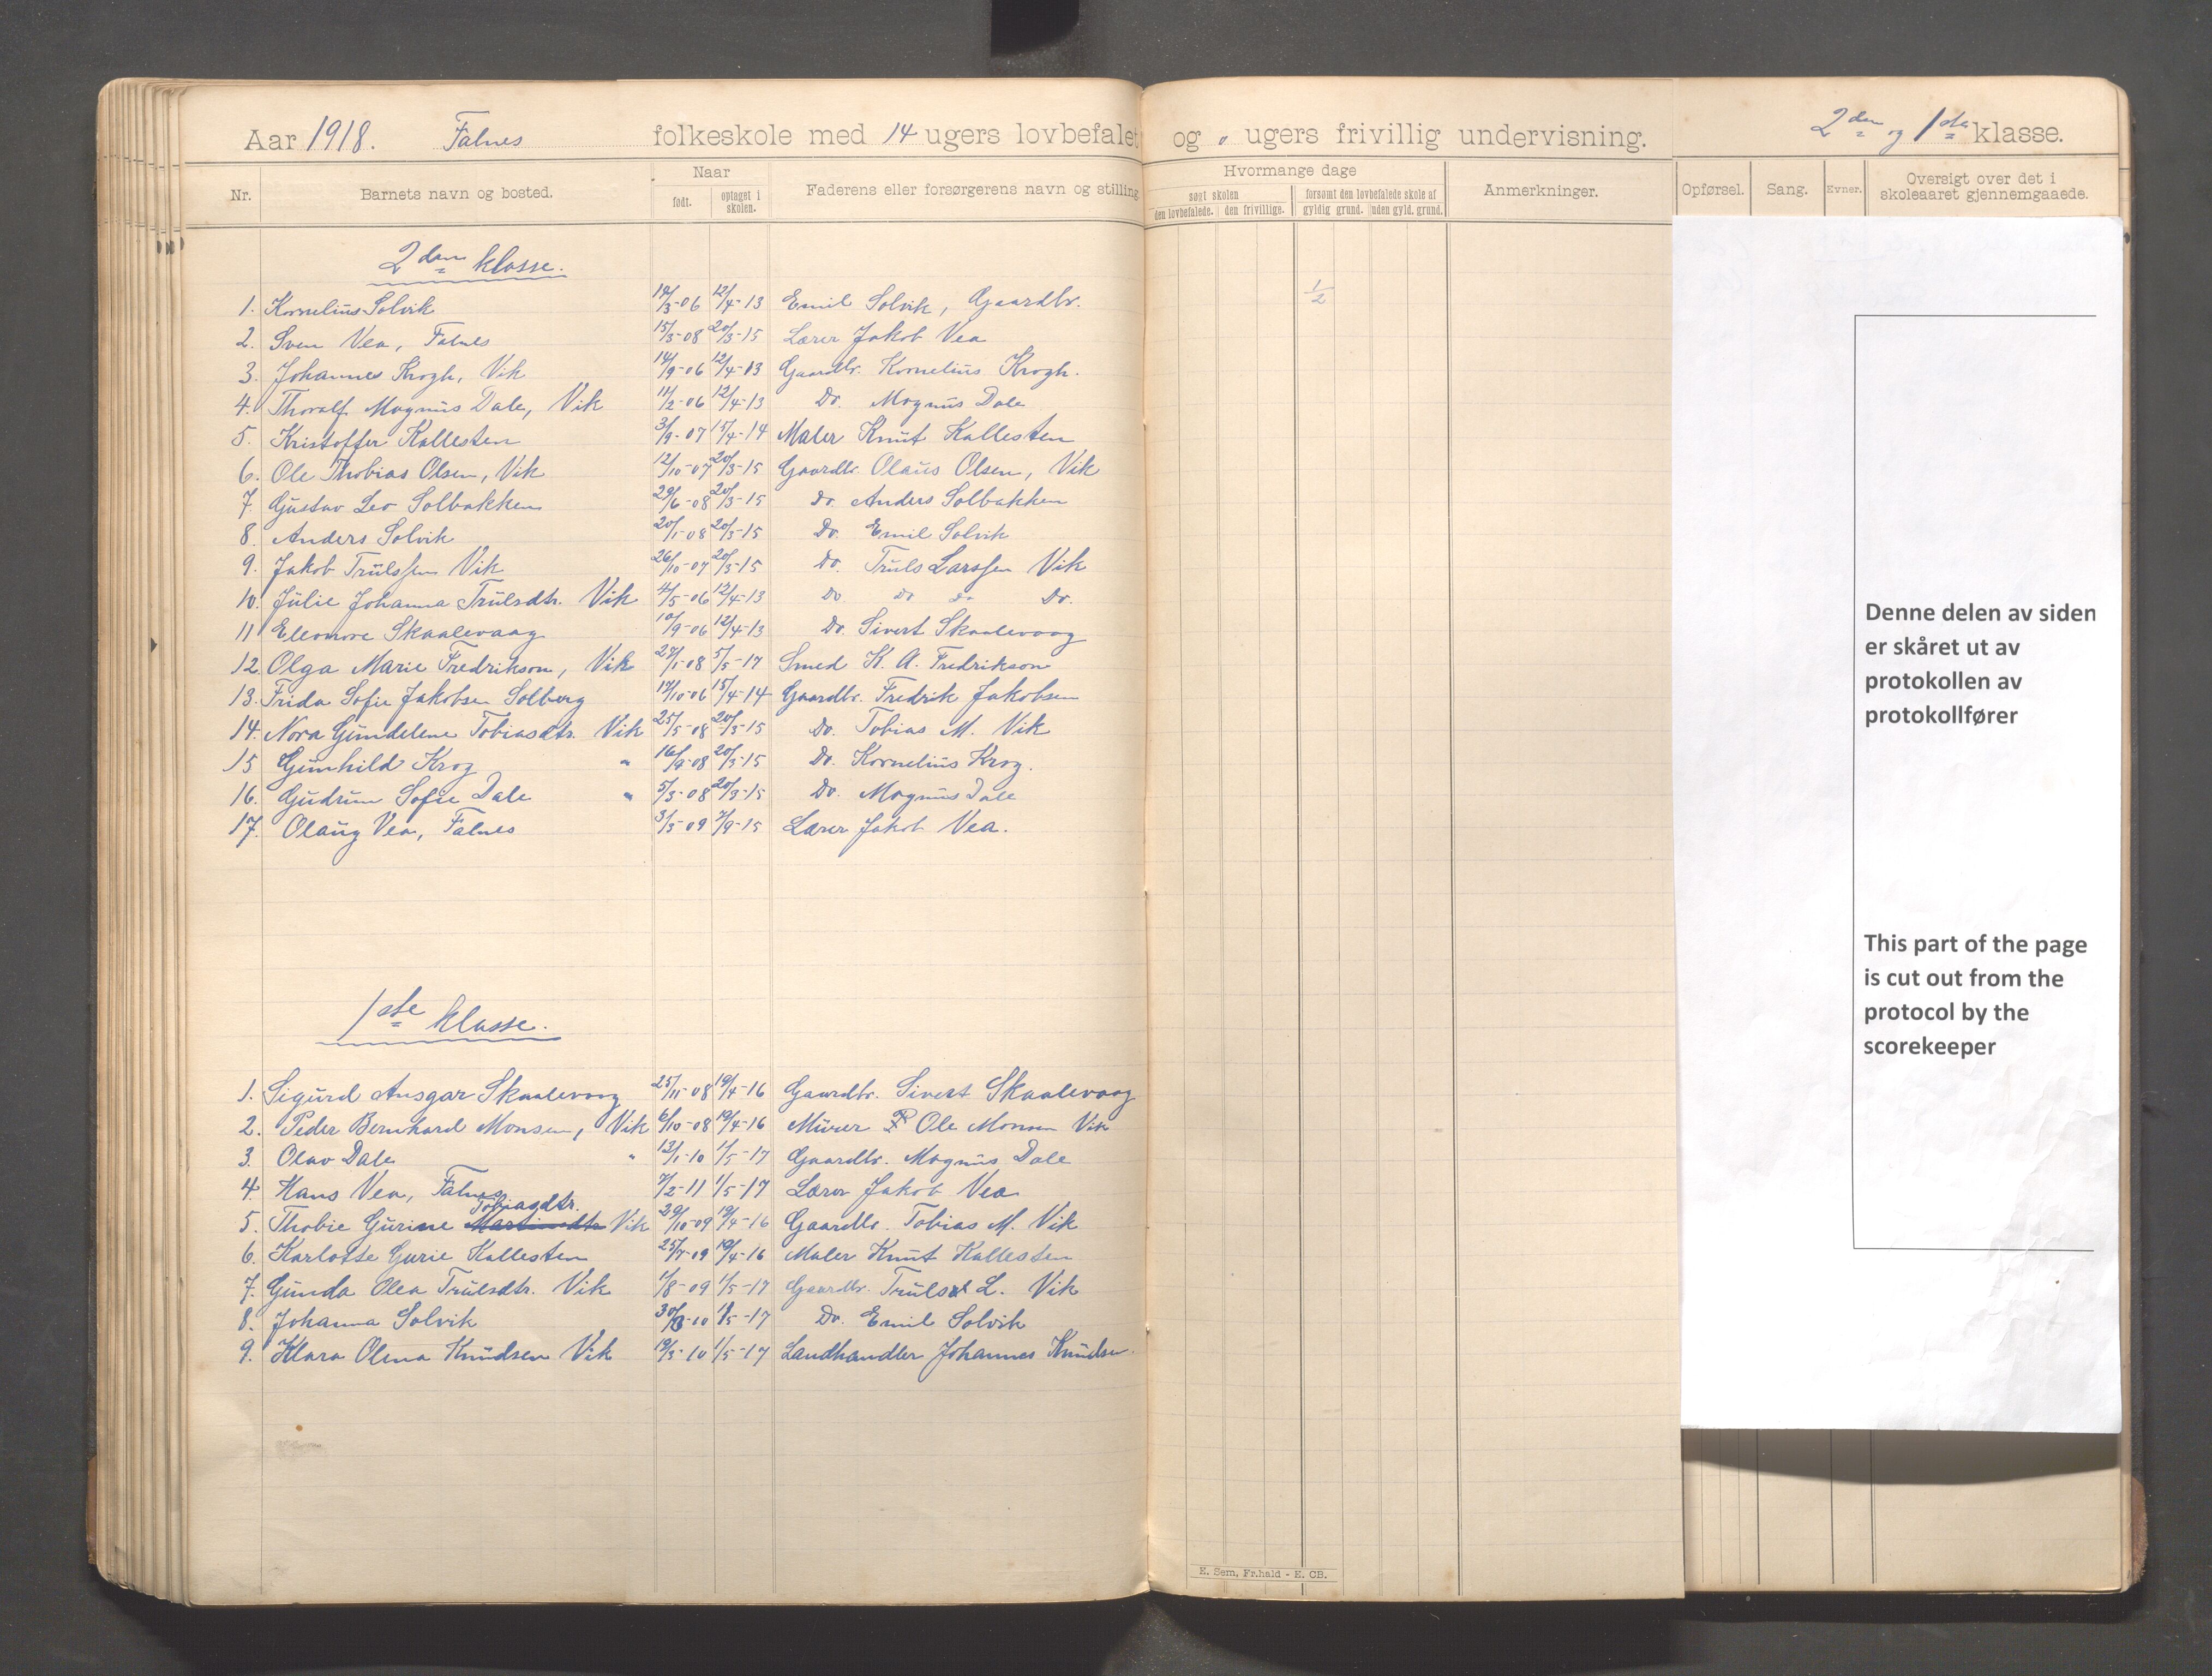 Aar 1918. Falnes folkeskole med 14 ugers lovbefalet og 0 ugers frivillig undervisning. 2den og 1ste klasse.
Nr. Barnets navn og bosted. Naar født. optaget i skolen. Faderens eller forsørgerens navn og stilling Hvormange dage søgt skolen den lovbefalede. den frivillige. forsømt den lovbefalede skole af gyldig grund. uden gyld. grund. Anmerkninger. Opførsel. Sang. Evner. Oversigt over det i skoleaaret gjennemgaaede.
2den klasse.
1. Kornelius Solvik 14/3-06 12/4-13 Emil Solvik, Gaardbr. 1/2
2. Sven Vea, Falnes 15/3-08 20/3-15 Lærer Jakob Vea
3. Johannes Krogh, Vik 14/9-06 12/4-13 Gaardbr. Kornelius Krogh.
4. Thoralf Magnus Dale, Vik 11/2-06 12/4-13 Do. Magnus Dale
5. Kristoffer Kallesten 3/9-07 15/4-14 Maler Knut Kallesten
6. Ole Thobias Olsen, Vik 12/10-07 20/3-15 Gaardbr. Olaus Olsen, Vik
7. Gustav Leo Solbakken 29/6-08 20/3-15 Do. Anders Solbakken
8. Anders Solvik 20/1-08 20/3-15 Do. Emil Solvik
9. Jakob Trulssen Vik 26/10-07 20/3-15 Do. Truls Larssen Vik
10. Julie Johanna Trulsdtr. Vik 4/5-06 12/4-13 Do Do Do Do.
11 Eleonore Skaalevaag 10/9-06 12/4-13 Do. Sivert Skaalevaag
12. Olga Marie Fredrikson, Vik 27/1-08 5/5-17 Smed K. A. Fredrikson
13. Frida Sofie Jakobsen Solberg 17/10-06 15/4-14 Gaardbr. Fredrik Jakobsen
14. Nora Gundelene Tobiasdtr. Vik 25/5-08 20/3-15 Do. Tobias M. Vik
15 Gunhild Krog " 16/9-08 20/3-15 Do. Kornelius Krog.
16. Gudrun Sofie Dale " 5/3-08 20/3-15 Do. Magnus Dale
17. Olaug Vea, Falnes 3/5-09 7/9-15 Lærer Jakob Vea.
1ste klasse.
1. Sigurd Ansgar Skaalevaag 25/11-08 19/4-16 Gaardbr. Sivert Skaalevaag
2. Peder Bernhard Monsen, Vik 6/10-08 19/4-16 Murer P Ole Monsen Vik
3. Olav Dale " 12/1-10 1/5-17 Gaardbr. Magnus Dale
4. Hans Vea, Falnes 7/2-11 1/5-17 Lærer Jakob Vea
Tobiasdtr.
5. Thobie Gurine Martinsdtr Vik 29/10-09 19/4-16 Gaardbr. Tobias M. Vik
6. Karlotte Gurie Kallesten 25/7-09 19/4-16 Maler Knut Kallesten
7. Gunda Olea Trulsdtr. Vik 1/8-09 1/5-17 Gaardbr. Truls L. Vik
8. Johanna Solvik 1/5-17 Do. Emil Solvik
9. Klara Olena Knudsen Vik 19/3-10 1/5-17 Landhandler Johannes Knudsen.
E. Sem, Fr.hald - E. CB.
Denne delen av siden
er skåret ut av
protokollen av
protokollfører
This part of the page
is cut out from the
protocol by the
scorekeeper